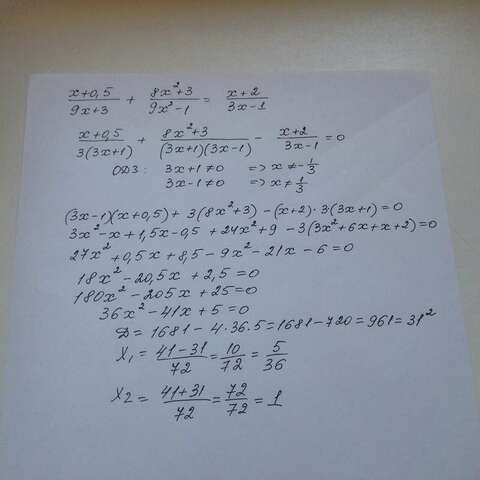 (x+0,5)/(9x+3) + (8x²+3)/(9x²-1) = (x+2)/(3x-1)
(x+0,5)/(3(3x+1)) + (8x²+3)/((3x+1)(3x-1)) - (x+2)/(3x-1) = 0
ОДЗ: 3x+1≠0 => x≠-1/3
3x-1≠0 => x≠1/3
(3x-1)(x+0,5)+3(8x²+3)-(x+2)·3(3x+1)=0
3x²-x+1,5x-0,5+24x²+9-3(3x²+6x+x+2)=0
27x²+0,5x+8,5-9x²-21x-6=0
18x²-20,5x+2,5=0
180x²-205x+25=0
36x²-41x+5=0
D=1681-4·36·5=1681-720=961=31²
x₁=(41-31)/72=10/72=5/36
x₂=(41+31)/72=72/72=1